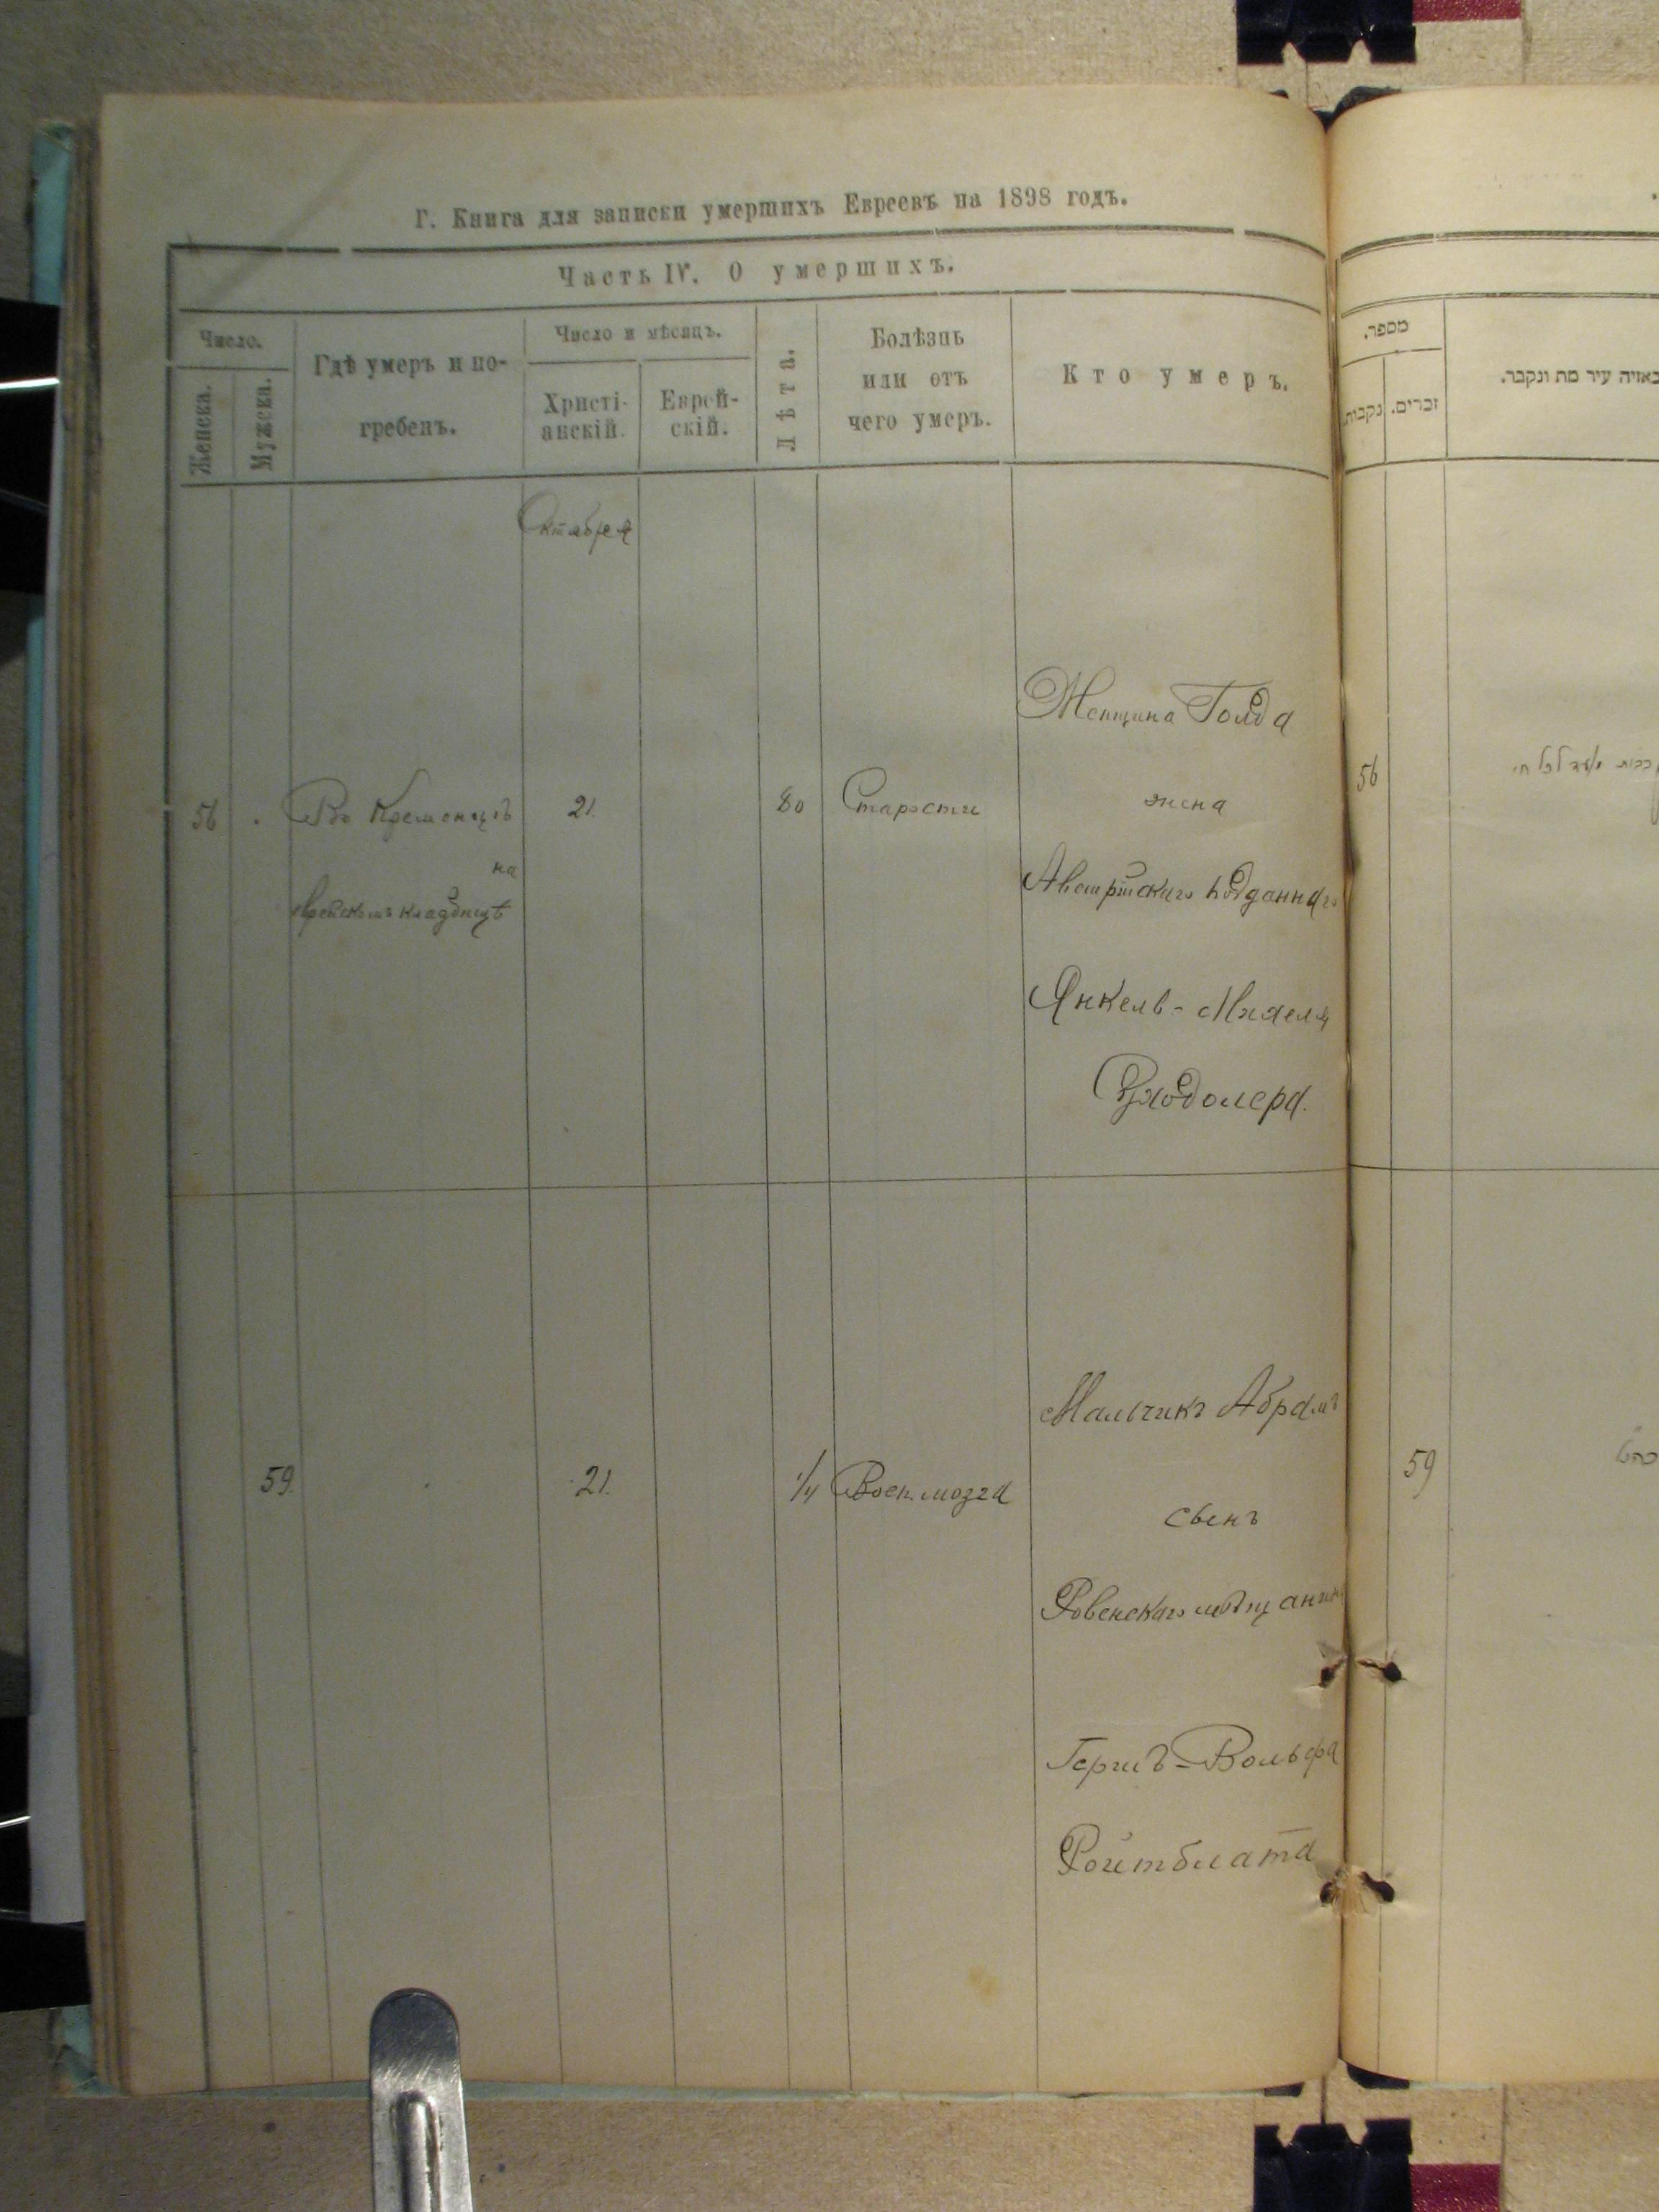 Г. Книга для записки умершихъ Евреевъ на 1898 годъ.
Часть IV. О умершихъ.
Число.
Женска.
Мужска.
Гдѣ умеръ и по-
гребенъ.
Число и мѣсяцъ.
Христі-
анскій.
Еврей-
скій.
Лѣта.
Болѣзнь
или отъ
чего умеръ.
Кто умеръ.
Октабря
56
Въ Кременцѣ
на
еврейскомъ кладбищѣ
21.
80
Старости
Женщина Голда
жена
Австрійскаго подданнаго
Янкель-Михеля
59.
21.
1/4
Восп. мозга
Мальчикъ Абрамъ
сынъ
Ровенскаго мѣщанина
Гершъ-Вольфа
Ройтблата
מספר.
נקבות
זכרים.
באיזה עיר מת ונקבר.
56
59